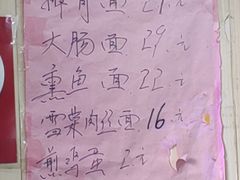 排骨面 21.元
大肠面 29.元
熏鱼面 22.元
雪菜肉丝面 16.元
煎鸡蛋 2元